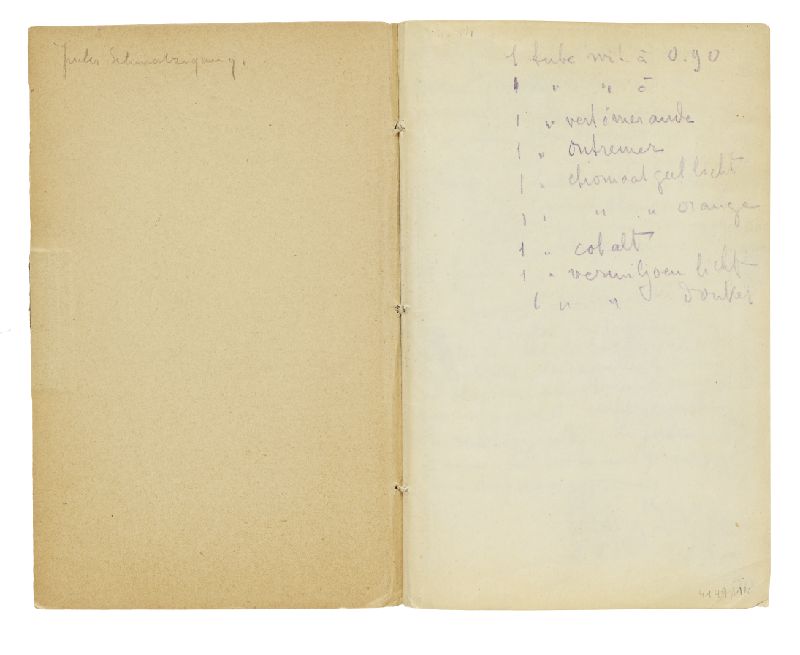 Jules Schmalzigaug.
1 tube wit à 0.90
1 " " à
1 " vert émeraude
1 " outremer
1 " chromaat geel licht
1 " " " orange
1 " cobalt
1 " vermiljoen licht
1 " " donker